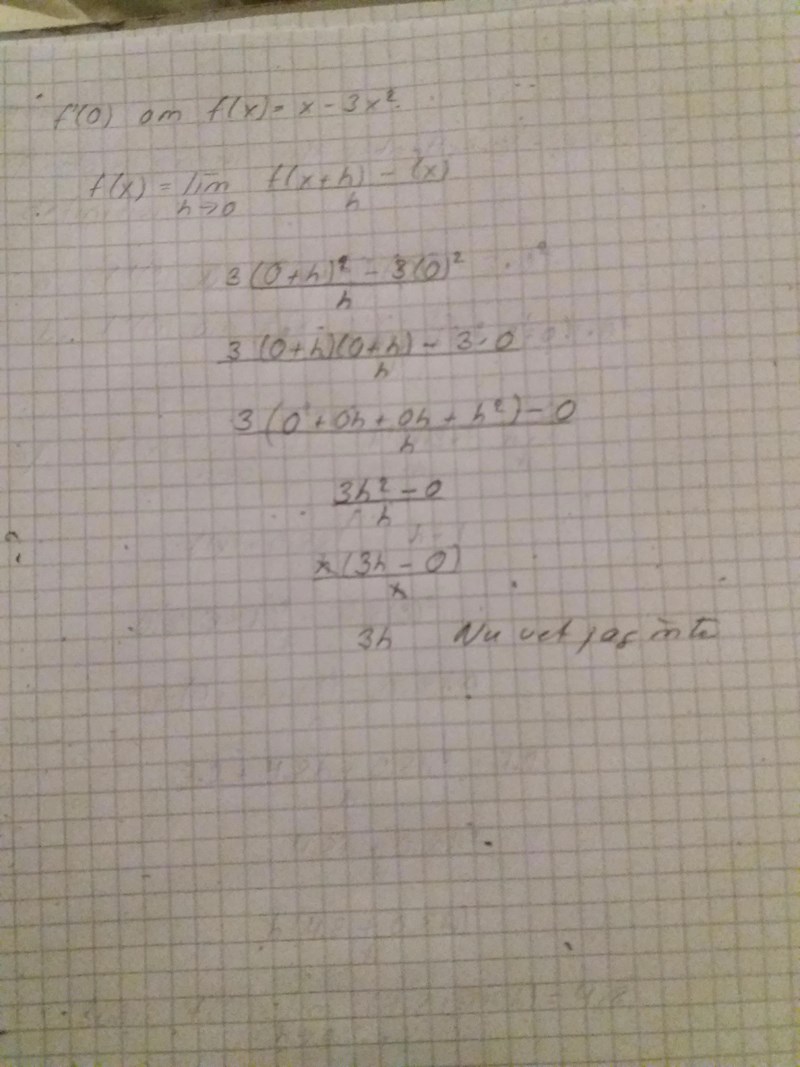 f'(0) om f(x) = x - 3x²
f(x) = lim h→0 f(x+h) - (x) / h
3(0+h)² - 3(0)² / h
3(0+h)(0+h) - 3·0 / h
3(0+0h+0h+h²) - 0 / h
3h² - 0 / h
h(3h - 0) / h
3h Nu vet jag inte